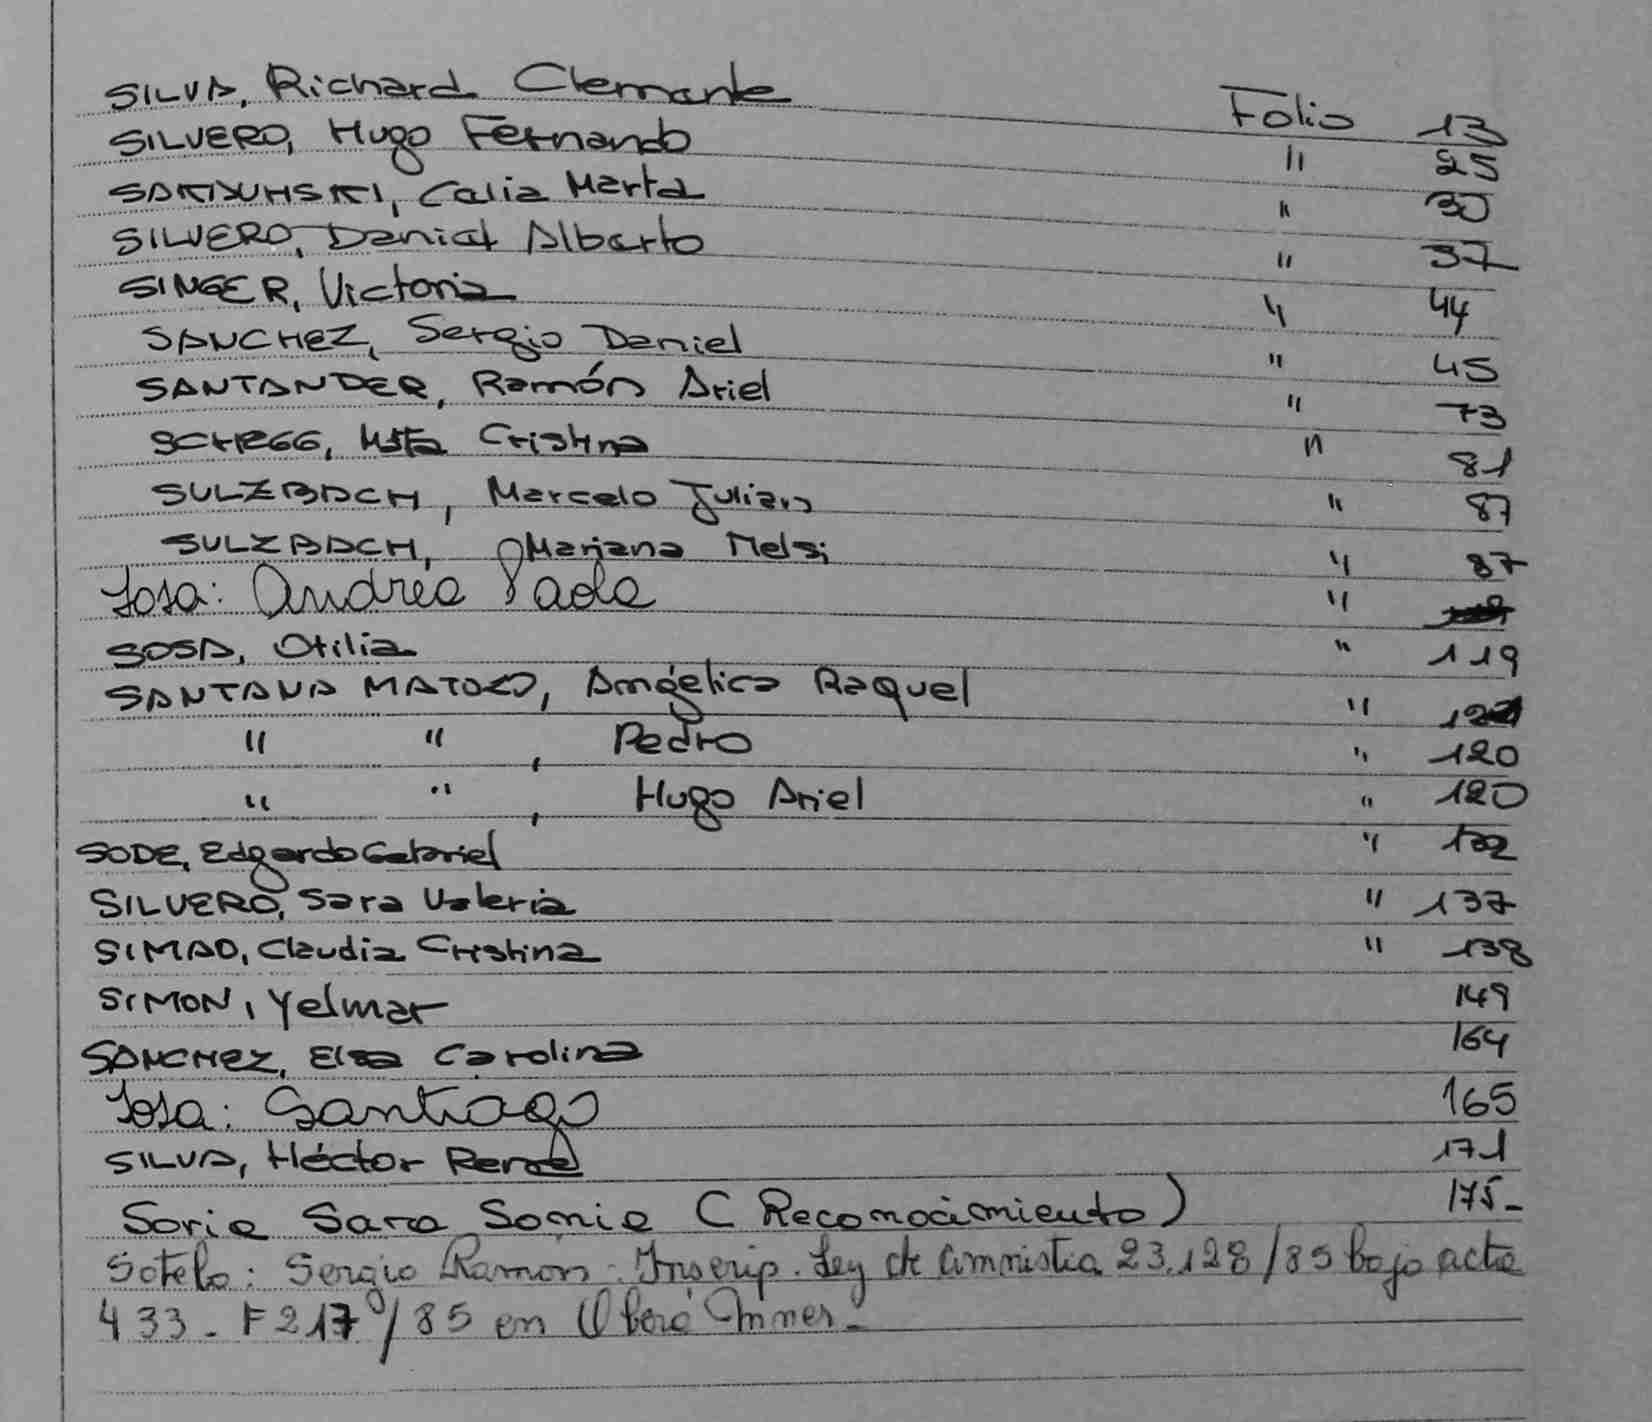 SILVA, Richard Clemente Folio 13
SILVERO, Hugo Fernando " 25
Celia Marta " 30
SILVERO, Daniel Alberto " 37
SINGER, Victoria " 44
SANCHEZ, Sergio Daniel " 45
SANTANDER, Ramón Ariel " 73
Cristina " 81
SULZBACH, Marcelo Julian " 87
SULZBACH, Mariana " 87
Sosa: Andrea Paola "
SOSA, Otilia " 119
SANTANA MATOZO, Angélica Raquel "
" " , Pedro " 120
" " , Hugo Ariel " 120
SODE, Edgardo Gabriel "
SILVERO, Sara Valeria " 137
SIMAO, Claudia Cristina " 138
SIMON, Yelmar 149
SANCHEZ, Elsa Carolina 164
Sosa: Santiago 165
SILVA, Héctor René 171
Soria Sara Sonia (Reconocimiento) 175-
Sotelo: Sergio Ramón. Inscrip. Ley de amnistia 23.128/85 bajo acta
433 - Fº217/85 en Oberá Mnes.-